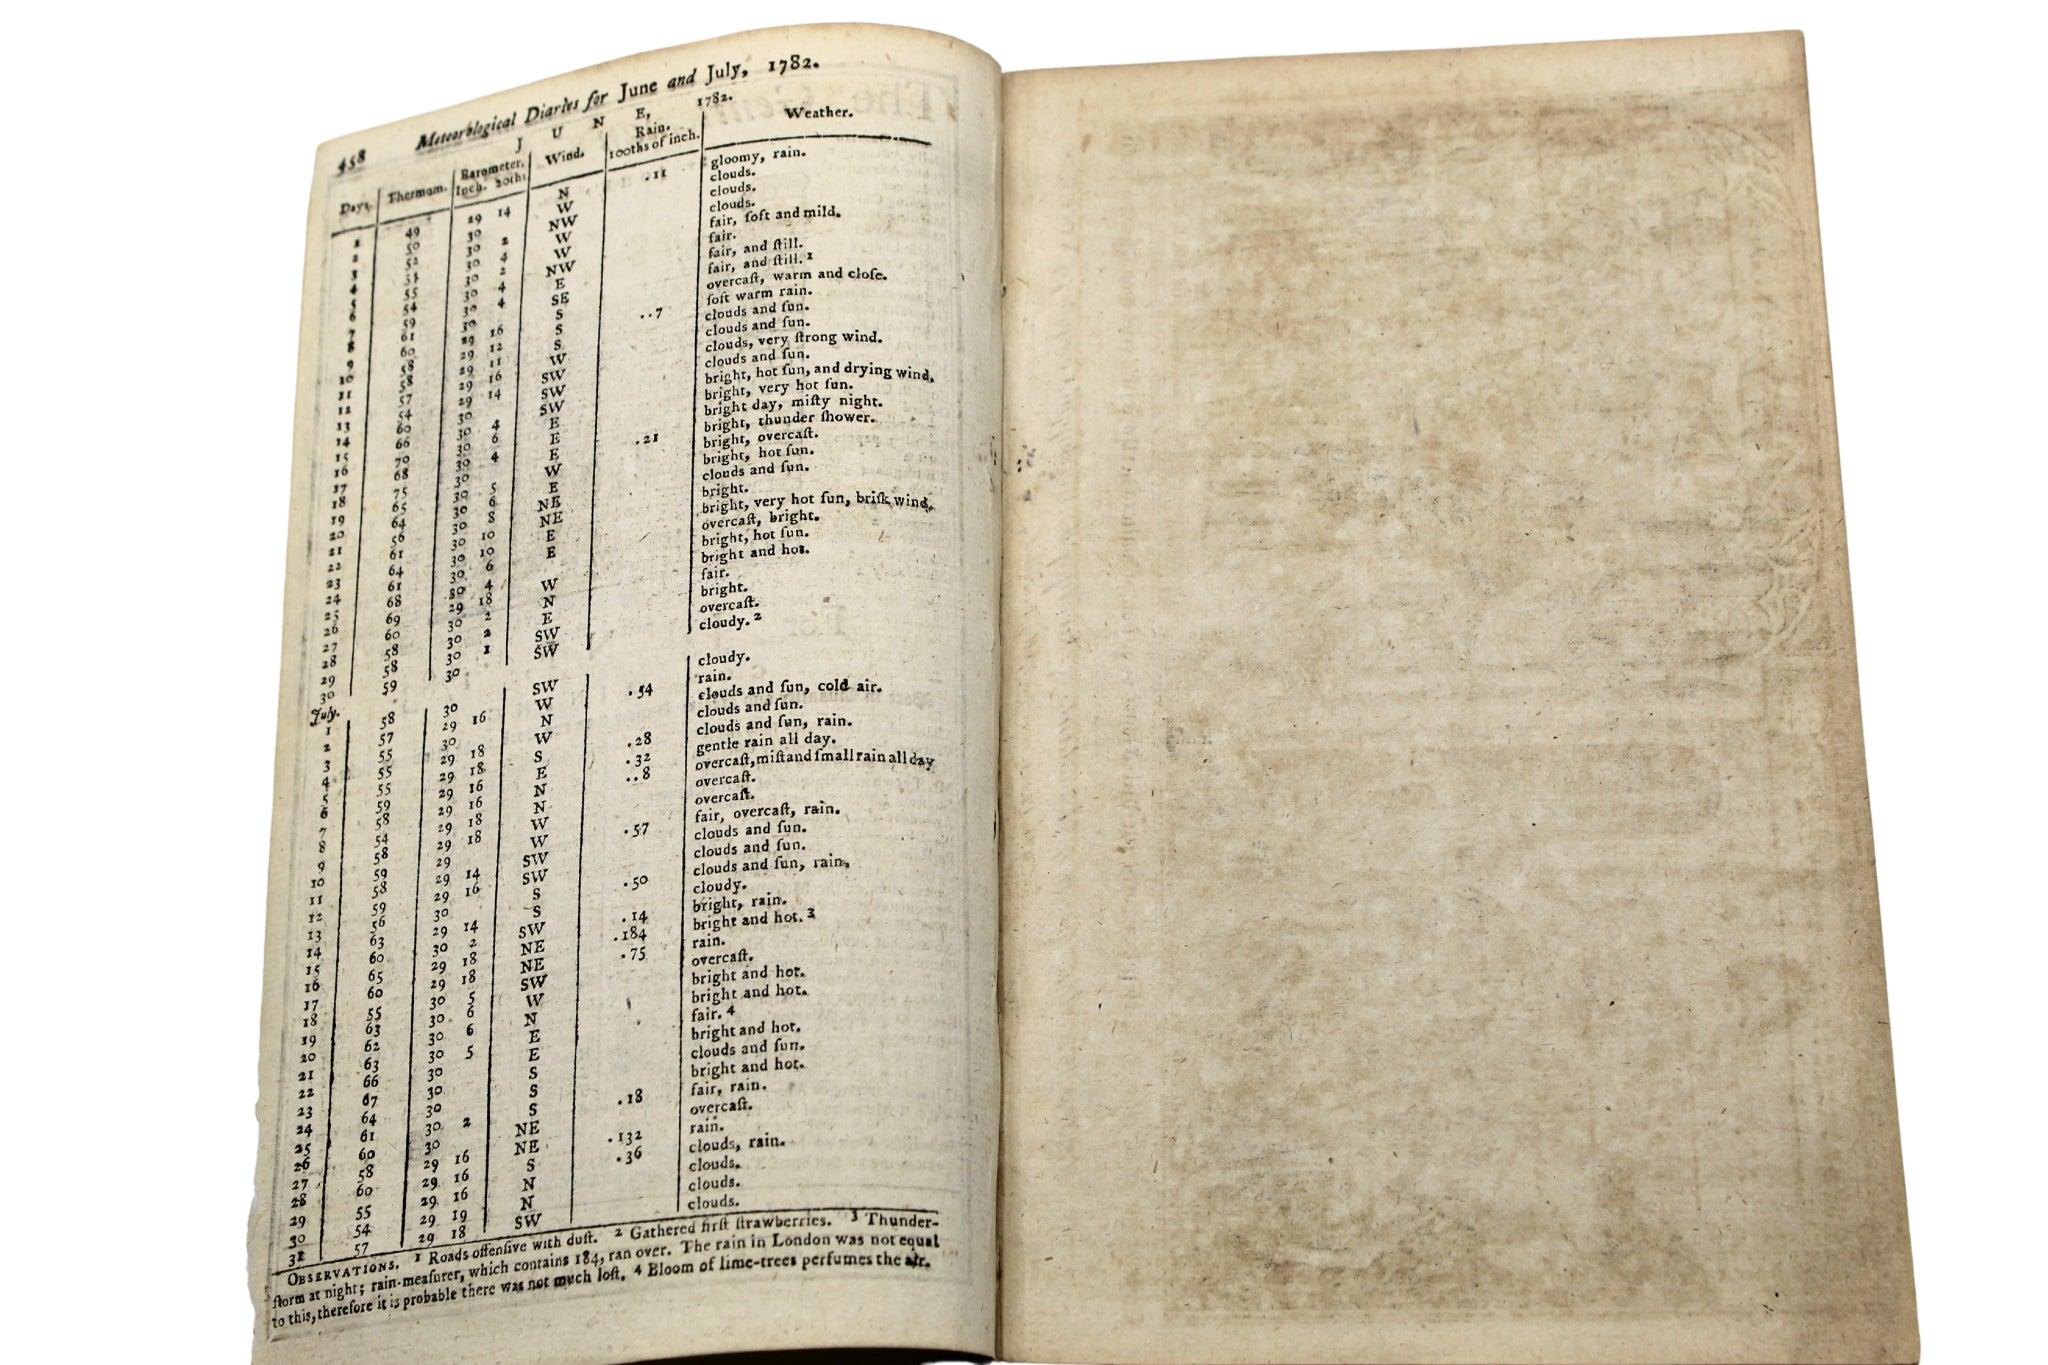 458 Meteorological Diaries for June and July, 1782.
J U N E, 1782.
Days. Thermom. Barometer. Inch. 20ths Wind. Rain. 100ths of inch. Weather.
1 49 29 14 N .11 gloomy, rain.
2 50 30 W clouds.
3 52 30 2 NW clouds.
4 51 30 4 W clouds.
5 55 30 2 W fair, ſoft and mild.
6 54 30 4 NW fair.
7 59 30 4 E fair, and ſtill.
8 61 30 SE fair, and ſtill. 1
9 60 29 16 S overcaſt, warm and cloſe.
10 58 29 12 S ..7 ſoft warm rain.
11 58 29 11 S clouds and ſun.
12 57 29 16 W clouds and ſun.
13 54 29 14 SW clouds, very ſtrong wind.
14 60 30 SW clouds and ſun.
15 66 30 4 SW bright, hot ſun, and drying wind.
16 70 30 6 E bright, very hot ſun.
17 68 30 4 E bright day, miſty night.
18 75 30 E .21 bright, thunder ſhower.
19 65 30 5 W bright, overcaſt.
20 64 30 6 E bright, hot ſun.
21 56 30 8 NE clouds and ſun.
22 61 30 10 NE bright.
23 64 30 10 E bright, very hot ſun, briſk wind.
24 61 30 6 E overcaſt, bright.
25 68 30 4 bright, hot ſun.
26 69 29 18 W bright and hot.
27 60 30 2 N fair.
28 58 30 2 E bright.
29 58 30 1 SW overcaſt.
30 59 30 SW cloudy. 2
July.
1 58 30 SW cloudy.
2 57 29 16 W .54 rain.
3 55 30 N clouds and ſun, cold air.
4 55 29 18 W clouds and ſun.
5 55 29 18 S .28 clouds and ſun, rain.
6 59 29 16 E .32 gentle rain all day.
7 58 29 16 N ..8 overcaſt, miſt and ſmall rain all day
8 54 29 18 N overcaſt.
9 58 29 18 W overcaſt.
10 59 29 W .57 fair, overcaſt, rain.
11 58 29 14 SW clouds and ſun.
12 59 29 16 SW clouds and ſun.
13 56 30 S .50 clouds and ſun, rain.
14 63 29 14 S cloudy.
15 60 30 2 SW .14 bright, rain.
16 65 29 18 NE .184 bright and hot. 3
17 60 29 18 NE .75 rain.
18 55 30 5 SW overcaſt.
19 63 30 6 W bright and hot.
20 62 30 6 N bright and hot.
21 63 30 5 E fair. 4
22 66 30 E bright and hot.
23 67 30 S clouds and ſun.
24 64 30 S bright and hot.
25 61 30 2 S .18 fair, rain.
26 60 30 NE overcaſt.
27 58 29 16 NE .132 rain.
28 60 29 16 S .36 clouds, rain.
29 55 29 16 N clouds.
30 54 29 19 N clouds.
31 57 29 18 SW clouds.
OBSERVATIONS. 1 Roads offenſive with duſt. 2 Gathered firſt ſtrawberries. 3 Thunder-
ſtorm at night; rain-meaſurer, which contains 184, ran over. The rain in London was not equal
to this, therefore it is probable there was not much loſt. 4 Bloom of lime-trees perfumes the air.